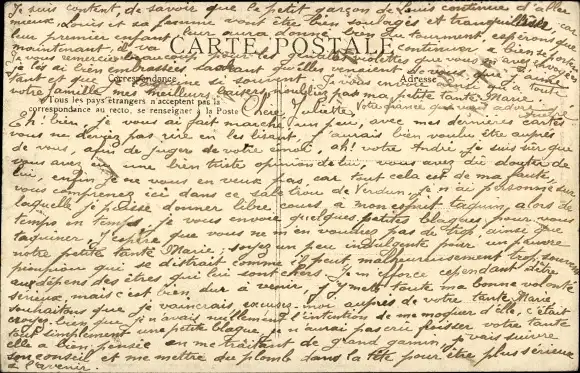 Je suis content, de savoir que le petit garçon de Louis continue d'aller
mieux, Louis et sa femme vont être bien soulagés et tranquilles, car
leur premier enfant leur aura donné bien du tourment, espérons que
maintenant, il va continuer a bien se porter
CARTE POSTALE
Je vous remercie beaucoup pour les violettes que vous m'avez envoyées
je les ai bien embrassées sachant qu'elles venaient de vous, que j'aime
Correspondance
Adresse
tant et que je vous envoie ainsi qu'à toute
votre famille mes meilleurs baisers, n'oubliez pas ma petite tante Marie.
Tous les pays étrangers n'acceptent pas la
correspondance au recto, se renseigner à la Poste
Votre fiancé qui vous adore
André
Chère Juliette
Eh! bien je vous ai fait un peu, avec mes dernières cartes
vous ne deviez pas rire en les lisant, j'aurais bien voulu être auprès
de vous, afin de juger de votre émoi, ah! votre André, je suis sûr que
vous avez eu une bien triste opinion de lui, vous avez dû douter de
lui, enfin je ne vous en veux pas, car tout cela est de ma faute,
vous comprenez ici dans ce sale trou de Verdun, je n'ai personne sur
laquelle je puisse donner libre cours à mon esprit taquin, alors de
temps en temps, je vous envoie quelques petites blagues pour vous
taquiner, j'espère que vous ne m'en voudrez pas de trop, ainsi que
notre petite tante Marie; soyez un peu indulgente pour un pauvre
pioupiou qui se distrait comme il peut, malheureusement trop souvent
aux dépens des êtres qui lui sont chers. Je m'efforce cependant d'être
sérieux, mais c'est bien dur à venir, j'y mets toute ma bonne volonté
souhaitons que je vaincrai, excusez-moi auprès de votre tante Marie,
croyez bien que je n'avais nullement l'intention de me moquer d'elle, c'était
tout simplement une petite blague, je n'aurai pas cru froisser votre tante
elle a bien pensée en me traitant de grand gamin, je vais suivre
son conseil et me mettre du plomb dans la tête pour être plus sérieux
à l'avenir.